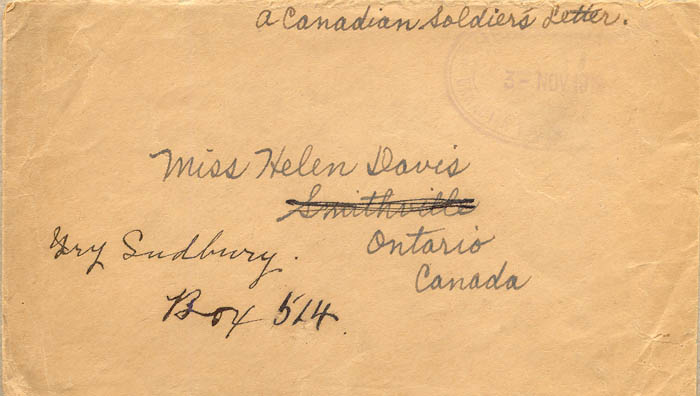 A Canadian Soldier's Letter.
3- NOV 19
Miss Helen Davis
Smithville
Ontario
Canada
Try Sudbury.
Box 514